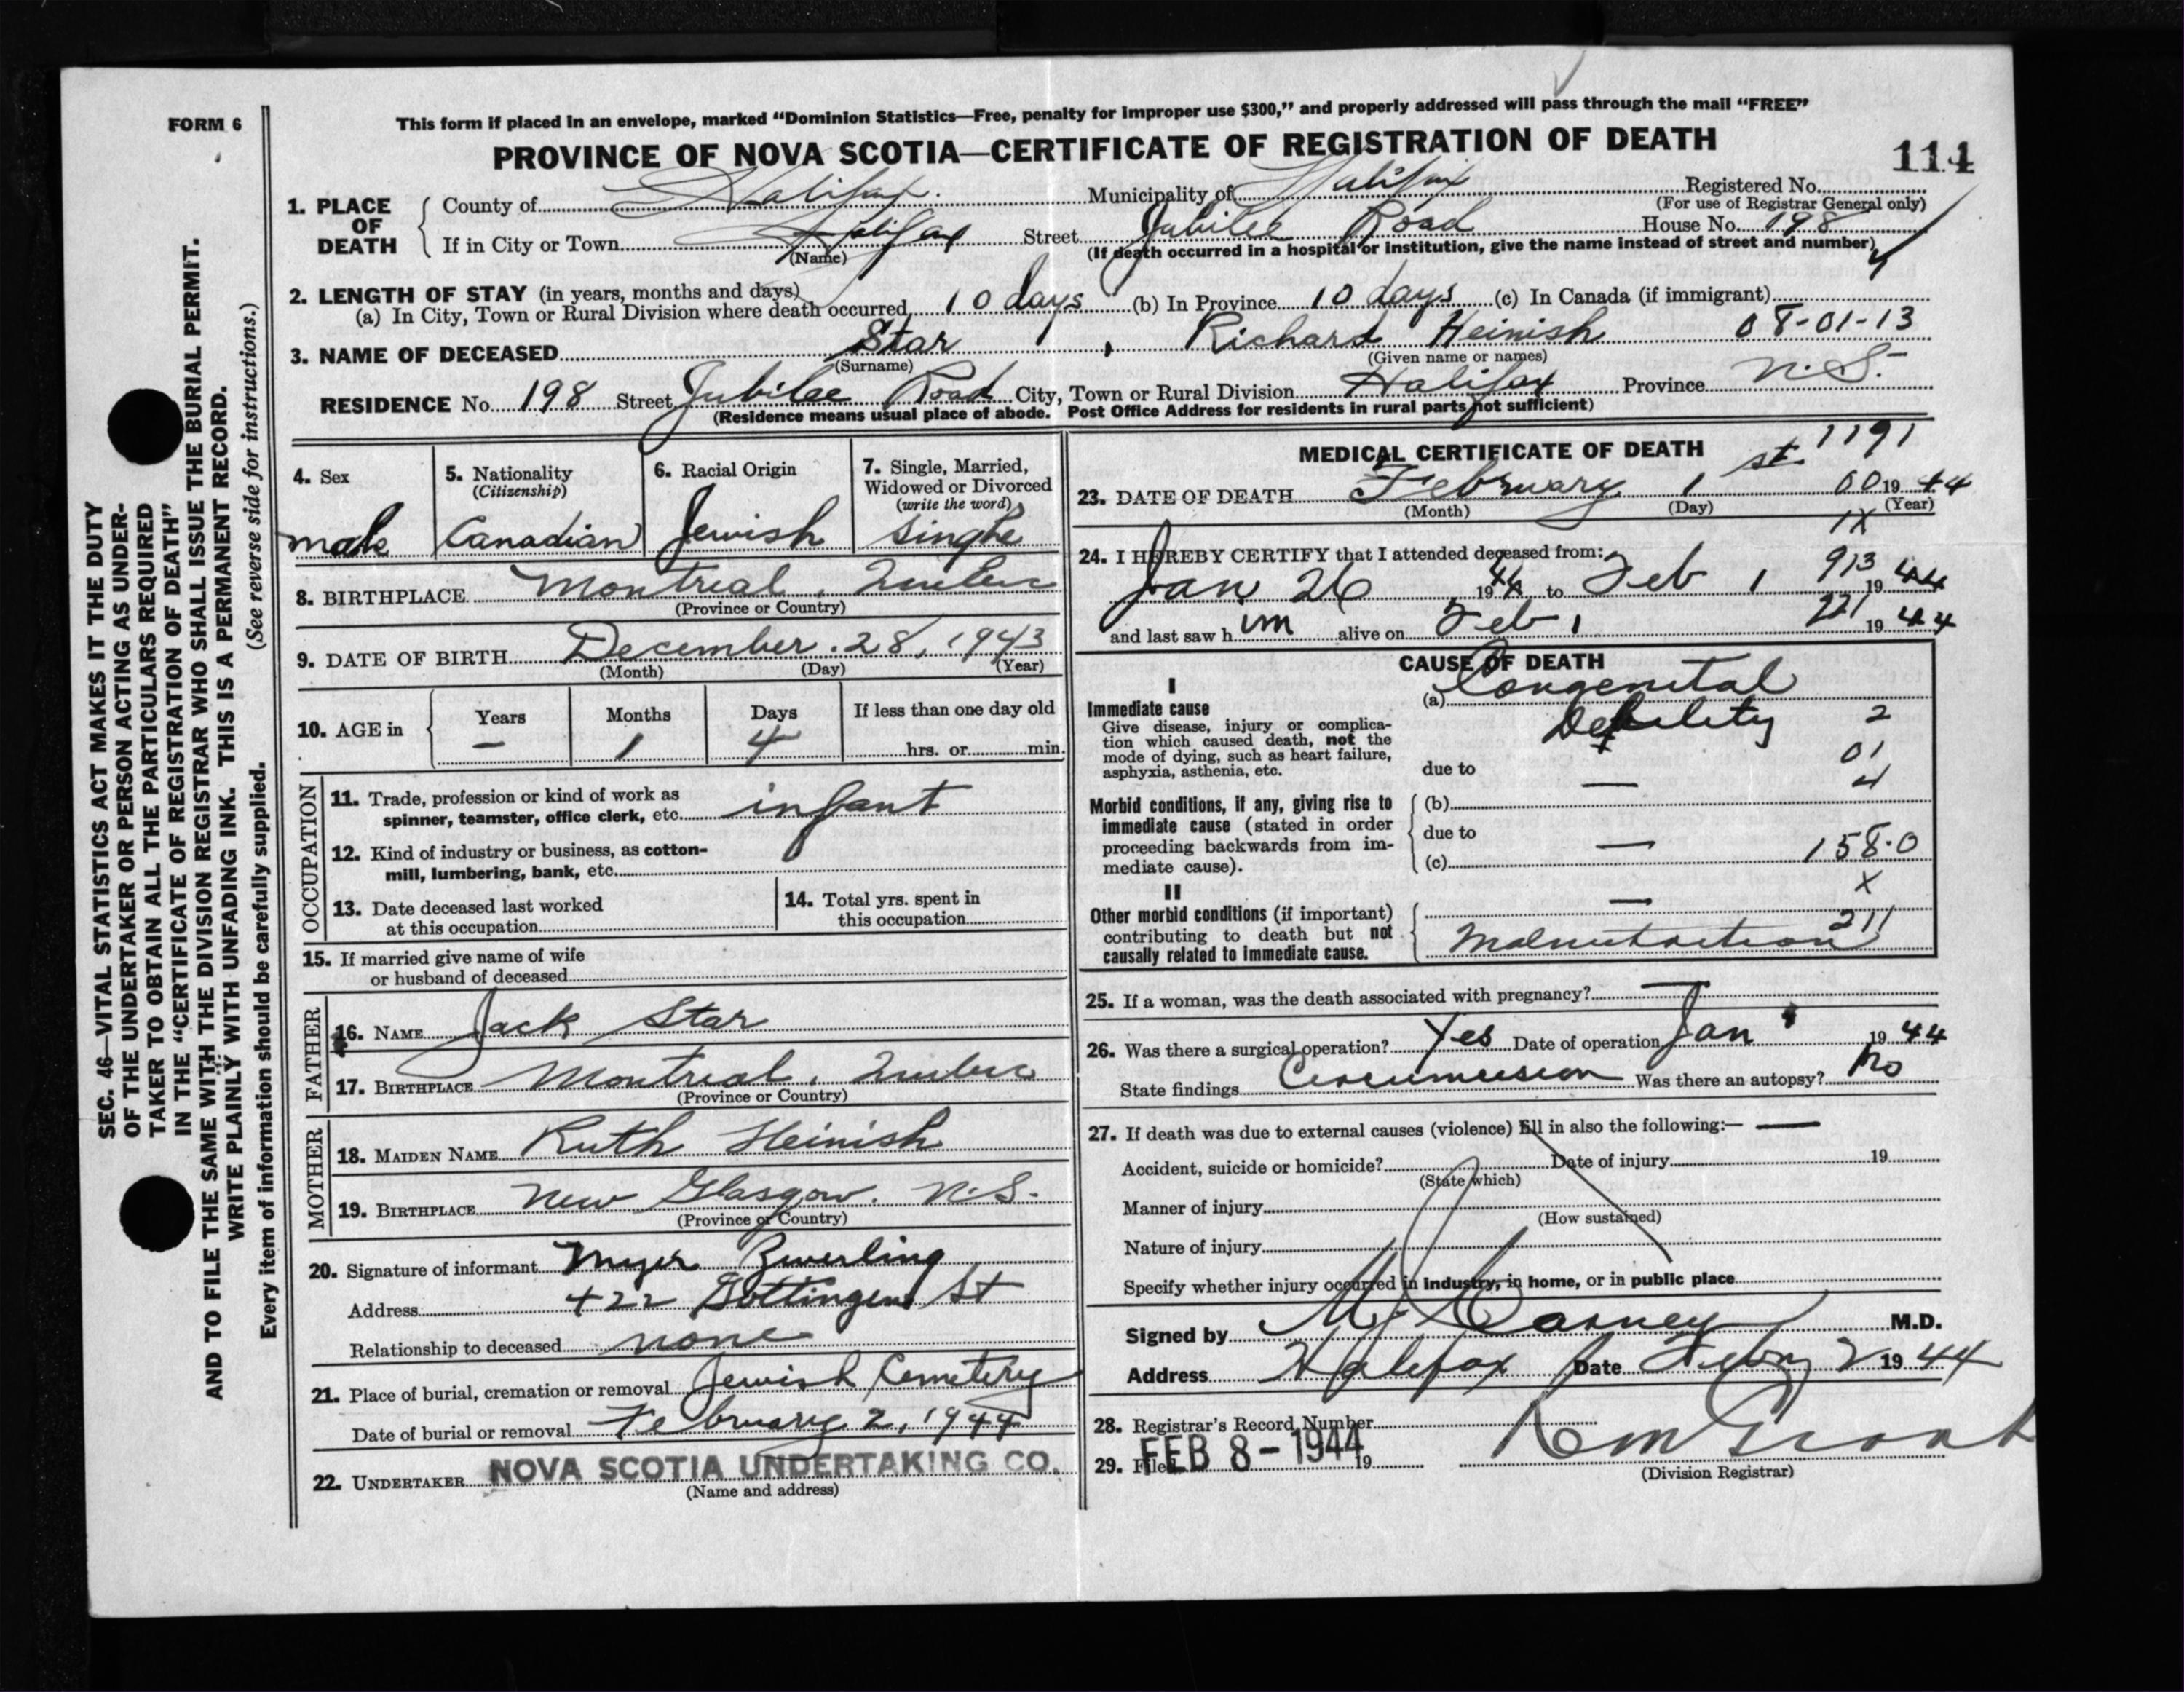 FORM 6
This form if placed in an envelope, marked “Dominion Statistics—Free, penalty for improper use $300,” and properly addressed will pass through the mail “FREE”
PROVINCE OF NOVA SCOTIA—CERTIFICATE OF REGISTRATION OF DEATH
114
1. PLACE OF DEATH
County of Halifax Municipality of Halifax Registered No.
(For use of Registrar General only)
If in City or Town Halifax Street Jubilee Road House No. 198
(Name) (If death occurred in a hospital or institution, give the name instead of street and number)
4
2. LENGTH OF STAY (in years, months and days)
(a) In City, Town or Rural Division where death occurred 10 days (b) In Province 10 days (c) In Canada (if immigrant)
3. NAME OF DECEASED Star, Richard Heinish 08-01-13
(Surname) (Given name or names)
RESIDENCE No. 198 Street Jubilee Road City, Town or Rural Division Halifax Province N.S.
(Residence means usual place of abode. Post Office Address for residents in rural parts not sufficient)
4. Sex
male
5. Nationality
(Citizenship)
Canadian
6. Racial Origin
Jewish
7. Single, Married,
Widowed or Divorced
(write the word)
single
8. BIRTHPLACE Montreal, Quebec
(Province or Country)
9. DATE OF BIRTH December 28, 1943
(Month) (Day) (Year)
10. AGE in
Years Months Days If less than one day old
— 1 4 hrs. or min.
OCCUPATION
11. Trade, profession or kind of work as
spinner, teamster, office clerk, etc. infant
12. Kind of industry or business, as cotton-
mill, lumbering, bank, etc.
13. Date deceased last worked
at this occupation
14. Total yrs. spent in
this occupation
15. If married give name of wife
or husband of deceased
FATHER
16. NAME Jack Star
17. BIRTHPLACE Montreal, Quebec
(Province or Country)
MOTHER
18. MAIDEN NAME Ruth Heinish
19. BIRTHPLACE New Glasgow. N.S.
(Province or Country)
20. Signature of informant Myer Zwerling
Address 422 Gottingen St
Relationship to deceased none
21. Place of burial, cremation or removal Jewish Cemetery
Date of burial or removal February 2, 1944
22. UNDERTAKER NOVA SCOTIA UNDERTAKING CO.
(Name and address)
MEDICAL CERTIFICATE OF DEATH
1191
23. DATE OF DEATH February 1 st. 00 19 44
(Month) (Day) (Year)
1X
24. I HEREBY CERTIFY that I attended deceased from:
Jan 26 1944 to Feb 1 913 19 44
and last saw h im alive on Feb 1 221 19 44
CAUSE OF DEATH
I
Immediate cause
Give disease, injury or complica-
tion which caused death, not the
mode of dying, such as heart failure,
asphyxia, asthenia, etc.
(a) Congenital
Debility 2
01
due to —
4
Morbid conditions, if any, giving rise to
immediate cause (stated in order
proceeding backwards from im-
mediate cause).
(b)
due to
(c) — 158.0
X
II
Other morbid conditions (if important)
contributing to death but not
causally related to immediate cause.
—
211
Malnutrition
25. If a woman, was the death associated with pregnancy? —
26. Was there a surgical operation? Yes Date of operation Jan 19 44
State findings Circumcision Was there an autopsy? No
27. If death was due to external causes (violence) fill in also the following:— —
Accident, suicide or homicide? Date of injury 19
(State which)
Manner of injury
(How sustained)
Nature of injury
Specify whether injury occurred in industry, in home, or in public place
Signed by M J Carney M.D.
Address Halifax Date Febry 2 19 44
28. Registrar's Record Number
29. Filed FEB 8 - 1944 19
(Division Registrar)
SEC. 46—VITAL STATISTICS ACT MAKES IT THE DUTY
OF THE UNDERTAKER OR PERSON ACTING AS UNDER-
TAKER TO OBTAIN ALL THE PARTICULARS REQUIRED
IN THE “CERTIFICATE OF REGISTRATION OF DEATH”
AND TO FILE THE SAME WITH THE DIVISION REGISTRAR WHO SHALL ISSUE THE BURIAL PERMIT.
WRITE PLAINLY WITH UNFADING INK. THIS IS A PERMANENT RECORD.
Every item of information should be carefully supplied. (See reverse side for instructions.)